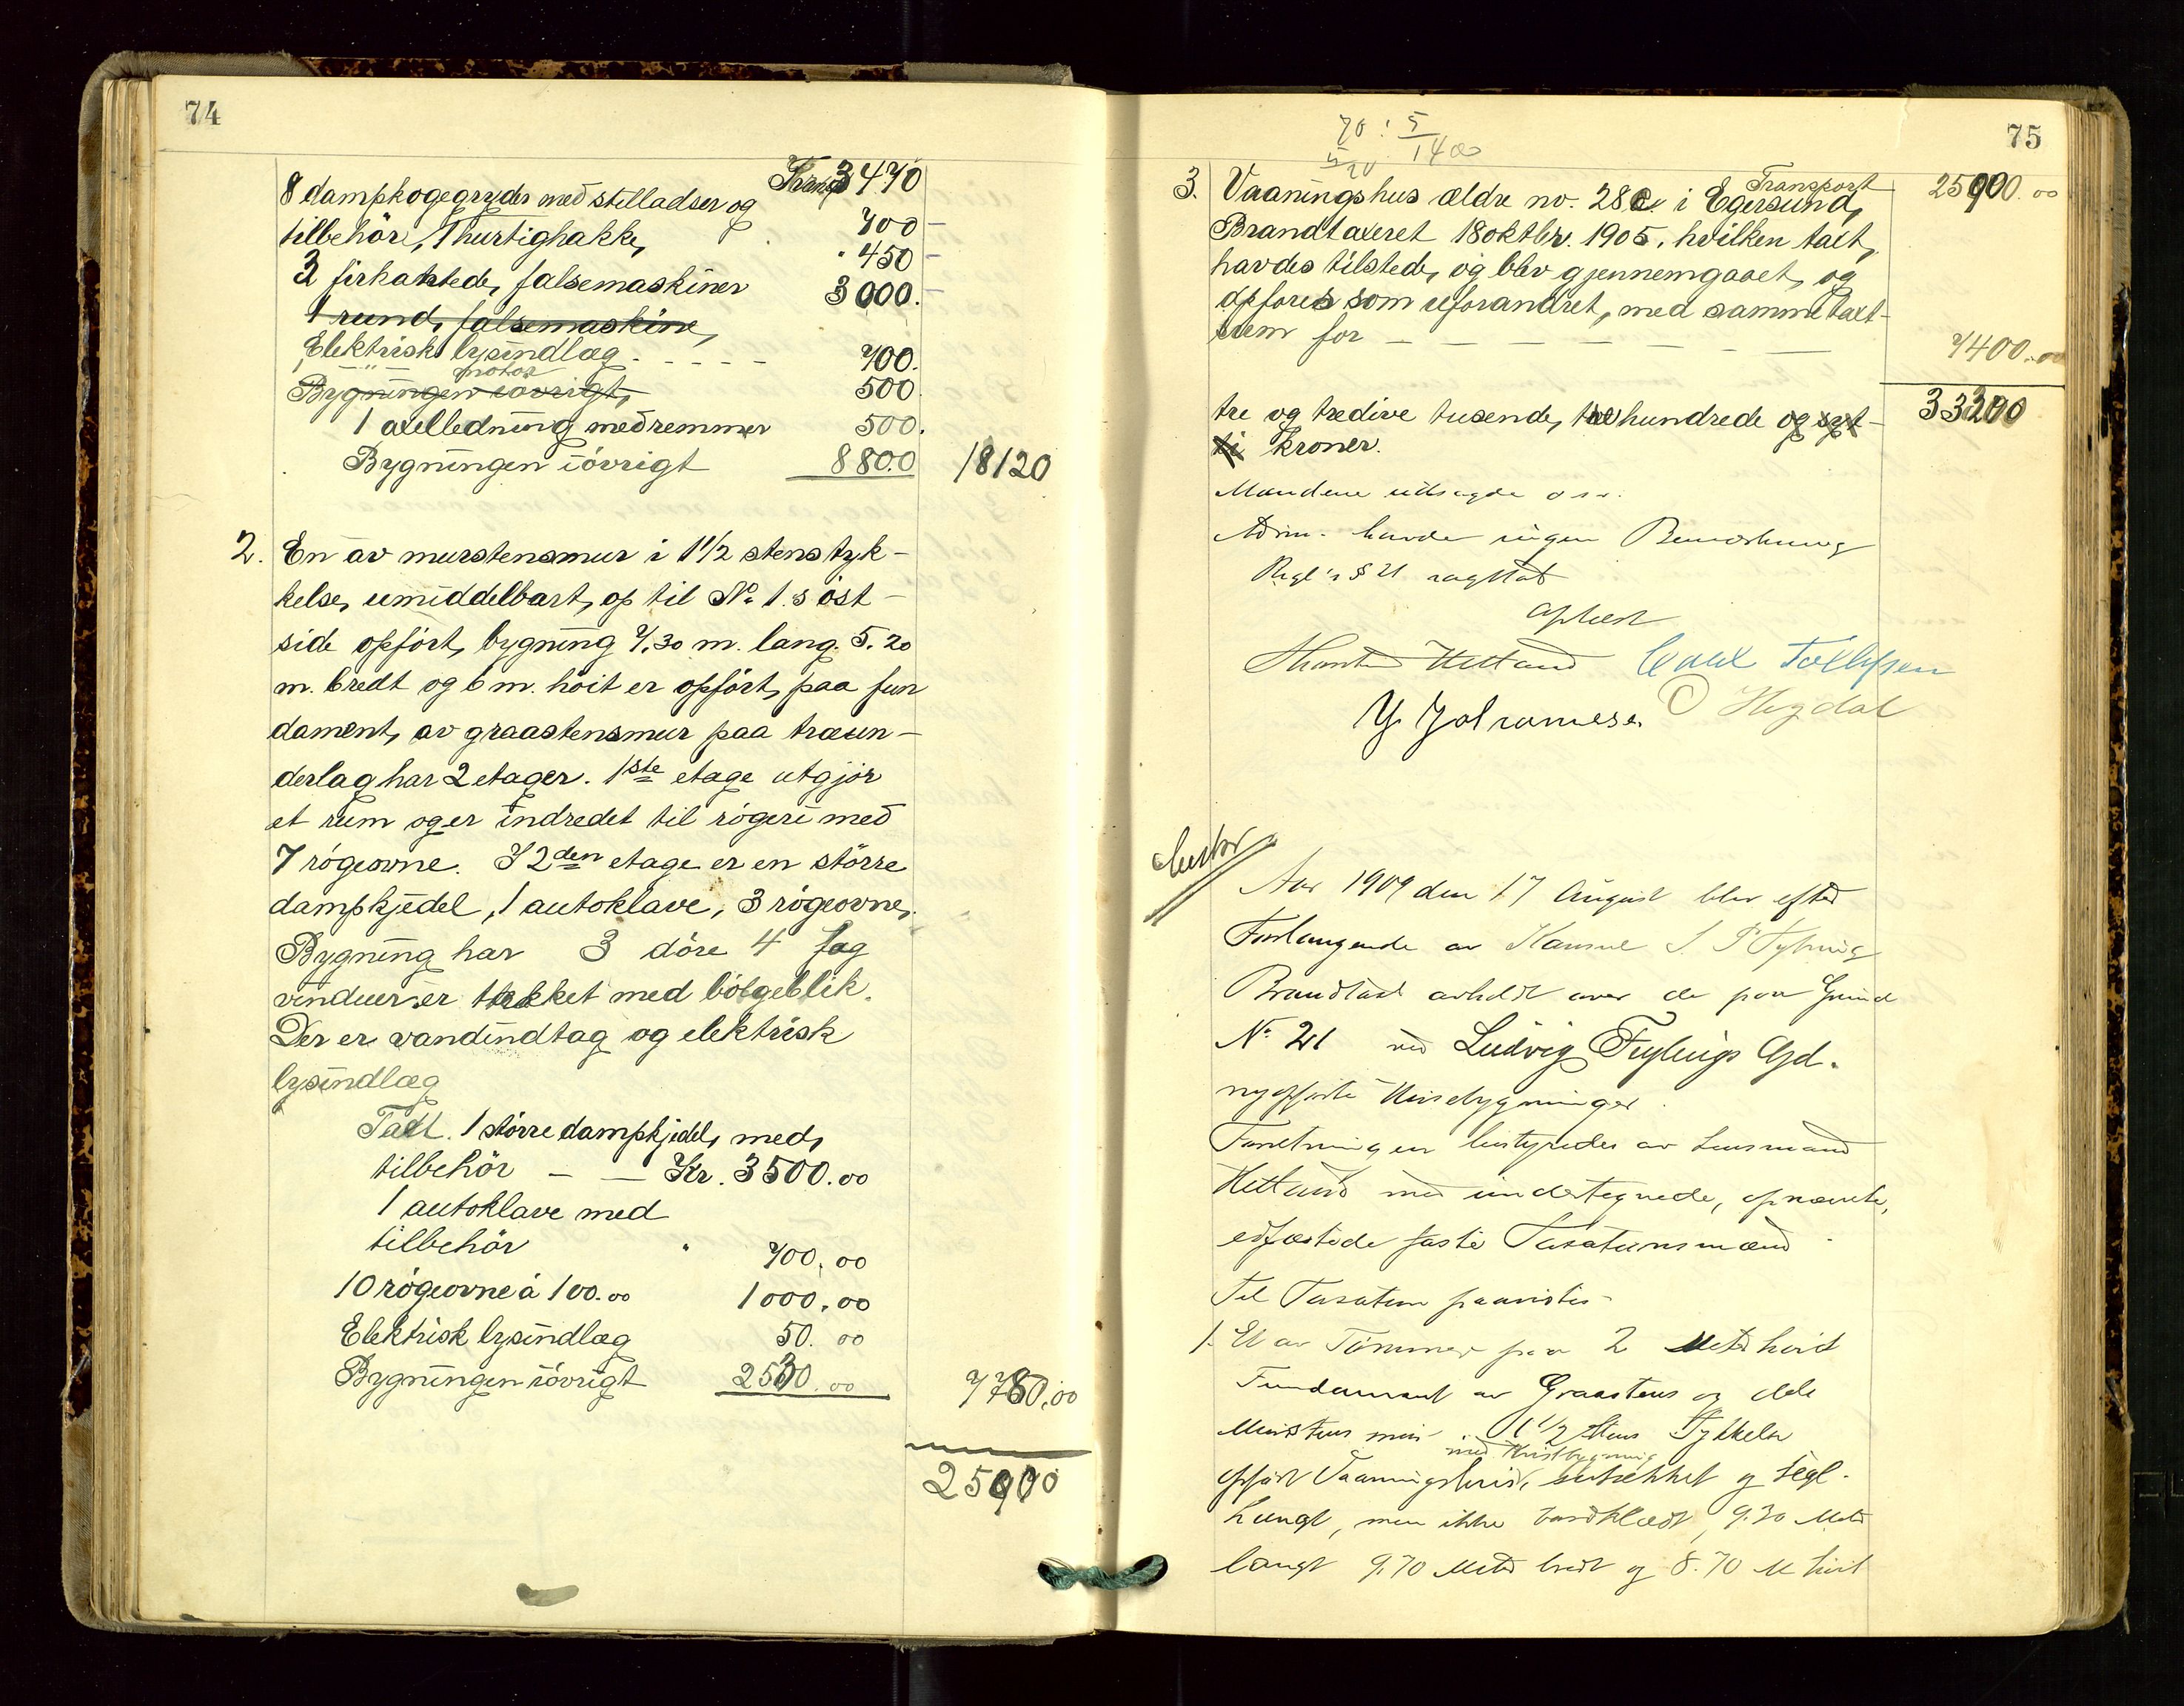 74
Transp 3470
8 dampkogegryder med stilladser og
tilbehör, 1 hurtighakke, 700 –
" 450 –
3 firkantede, falsemaskiner 3000. –
1 rund, falsemaskine,
Elektrisk lysindlæg - - - - - 700.
– " – motor
Bygningen iövrigt, 500
1 axelledning med remmer 500.
Bygningen iövrigt 8800 18120
2. En av murstensmur i 1 1/2 stens tyk-
kelse, umiddelbart, op til No. 1.s öst-
side opfört, bygning 7.30 m. lang. 5.20
m. bredt og 6 m. höit er opfört, paa fun
dament, av graastensmur paa træun-
derlag har 2 etager. 1ste etage utgjör
et rum og er indredet til rögeri med
7 rögeovne. I 2den etage er en större
dampkjedel, 1 autoklave, 3 rögeovne,
Bygning har 3 döre 4 fag
vinduer, er tækket med bölgeblik.
Der er vandindtag og elektrisk
lysindlæg
Taxt. 1 större dampkjedel, med,
tilbehör – – Kr. 3500.00
1 autoklave med
tilbehör " 700.00
10 rögeovne á 100.00 1000.00
Elektrisk lysindlæg 50.00
Bygningen iövrigt 2530.00 7780.00
25900
75
70 : 5
1400
Transport 25900.00
3. Vaaningshus ældre no. 28 a. i Egersund,
Brandtaxeret 18 oktbr. 1905. hvilken taxt,
havdes tilstede, og blev gjennemgaaet, og
opföres som uforandret, med samme taxt-
sum for – – – – – – – 7400.00
33300
tre og tredive tusende, tre hundrede og syt-
ti kroner.
Mændene utsagde o s v.
Adm. havde ingen Bemerkning
Regl's § 21 iagttat
Oplæst
Hetland Tollefsen
Hegdal
Aar 1909 den 17 August blev efter
Forlangende av
Brandtaxt avholdt over de paa Grund
No. 21 ved Ludvig Feylings Gd.
nyopförte Husebygninger.
Forretningen bestyredes av Lensmand
Hetland med undertegnede, opnævnte,
edfæstede faste Taxationsmænd
Til Taxation paavistes
1. Et av Tömmer paa 2 Meter höit
Fundament av Graastens og dels
Murstens mur i 1 1/2 Stens Tykkelse
med Kvistbygning
opfört Vaaningshus, utrekket og tegl-
hængt, men ikke bordklædt, 9.30 Meter
langt 9.70 Meter bredt og 8.70 M höit